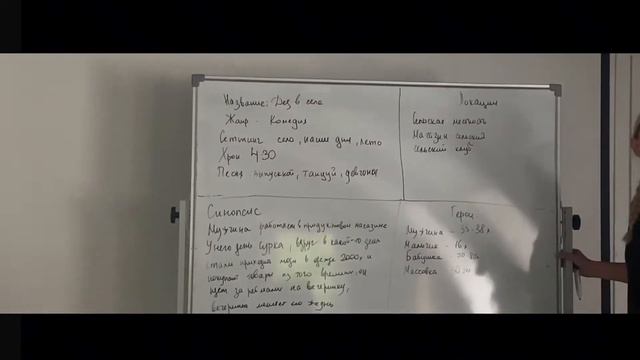 Название: Дез в селе
Жанр - Комедия
Сеттинг село, наши дни, лето
Хрон 4:30
Песня выпускной, танцуй, девчонка
Локации
Сельская местность
Магазин сельский
сельский клуб
Синопсис
Мужчина работает в продуктовом магазине
У него день сурка, вдруг в какой-то день
стали приходить люди в одежде 2000х и
покупают товары из того времени, он
идет за ребятами на вечеринку,
вечеринка меняет его жизнь
Герои
Мужчина - 35-38л
Мальчик - 16л
Бабушка - 70
Массовка